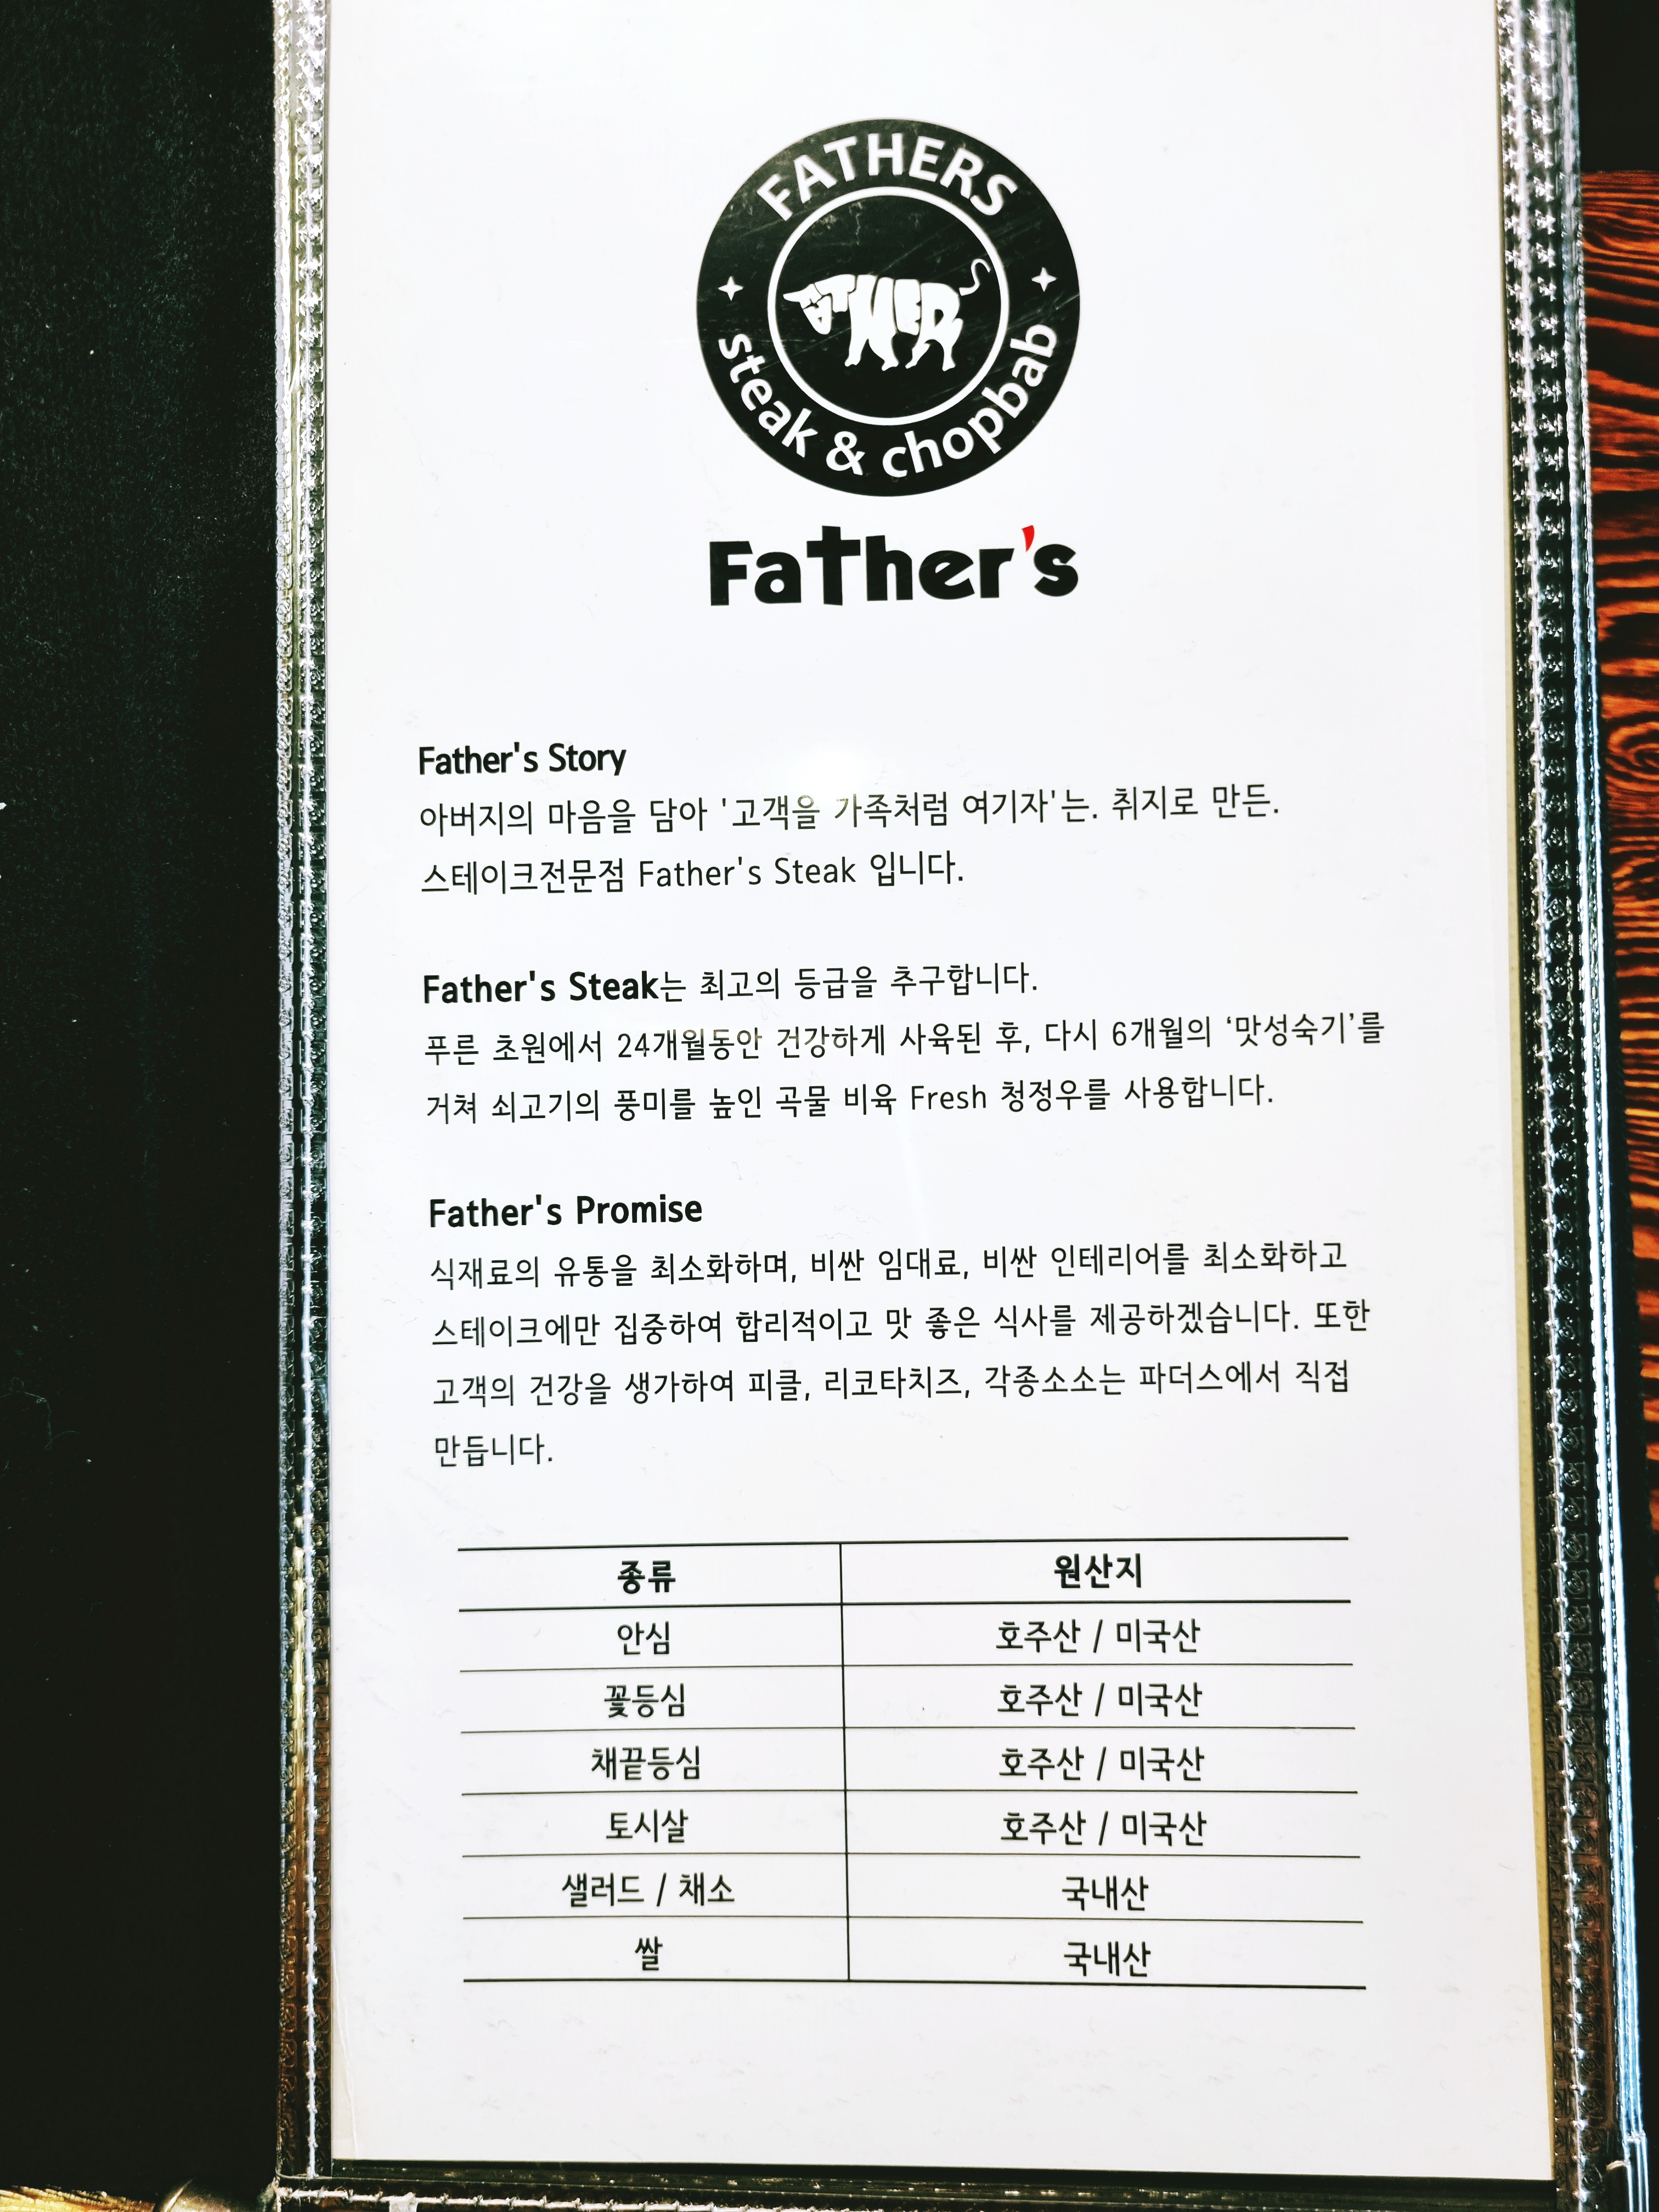 FATHERS
FATHER
steak & chopbab
Father's
Father's Story
아버지의 마음을 담아 '고객을 가족처럼 여기자'는. 취지로 만든.
스테이크전문점 Father's Steak 입니다.
Father's Steak는 최고의 등급을 추구합니다.
푸른 초원에서 24개월동안 건강하게 사육된 후, 다시 6개월의 ‘맛성숙기’를
거쳐 쇠고기의 풍미를 높인 곡물 비육 Fresh 청정우를 사용합니다.
Father's Promise
식재료의 유통을 최소화하며, 비싼 임대료, 비싼 인테리어를 최소화하고
스테이크에만 집중하여 합리적이고 맛 좋은 식사를 제공하겠습니다. 또한
고객의 건강을 생가하여 피클, 리코타치즈, 각종소소는 파더스에서 직접
만듭니다.
종류 원산지
안심 호주산 / 미국산
꽃등심 호주산 / 미국산
채끝등심 호주산 / 미국산
토시살 호주산 / 미국산
샐러드 / 채소 국내산
쌀 국내산